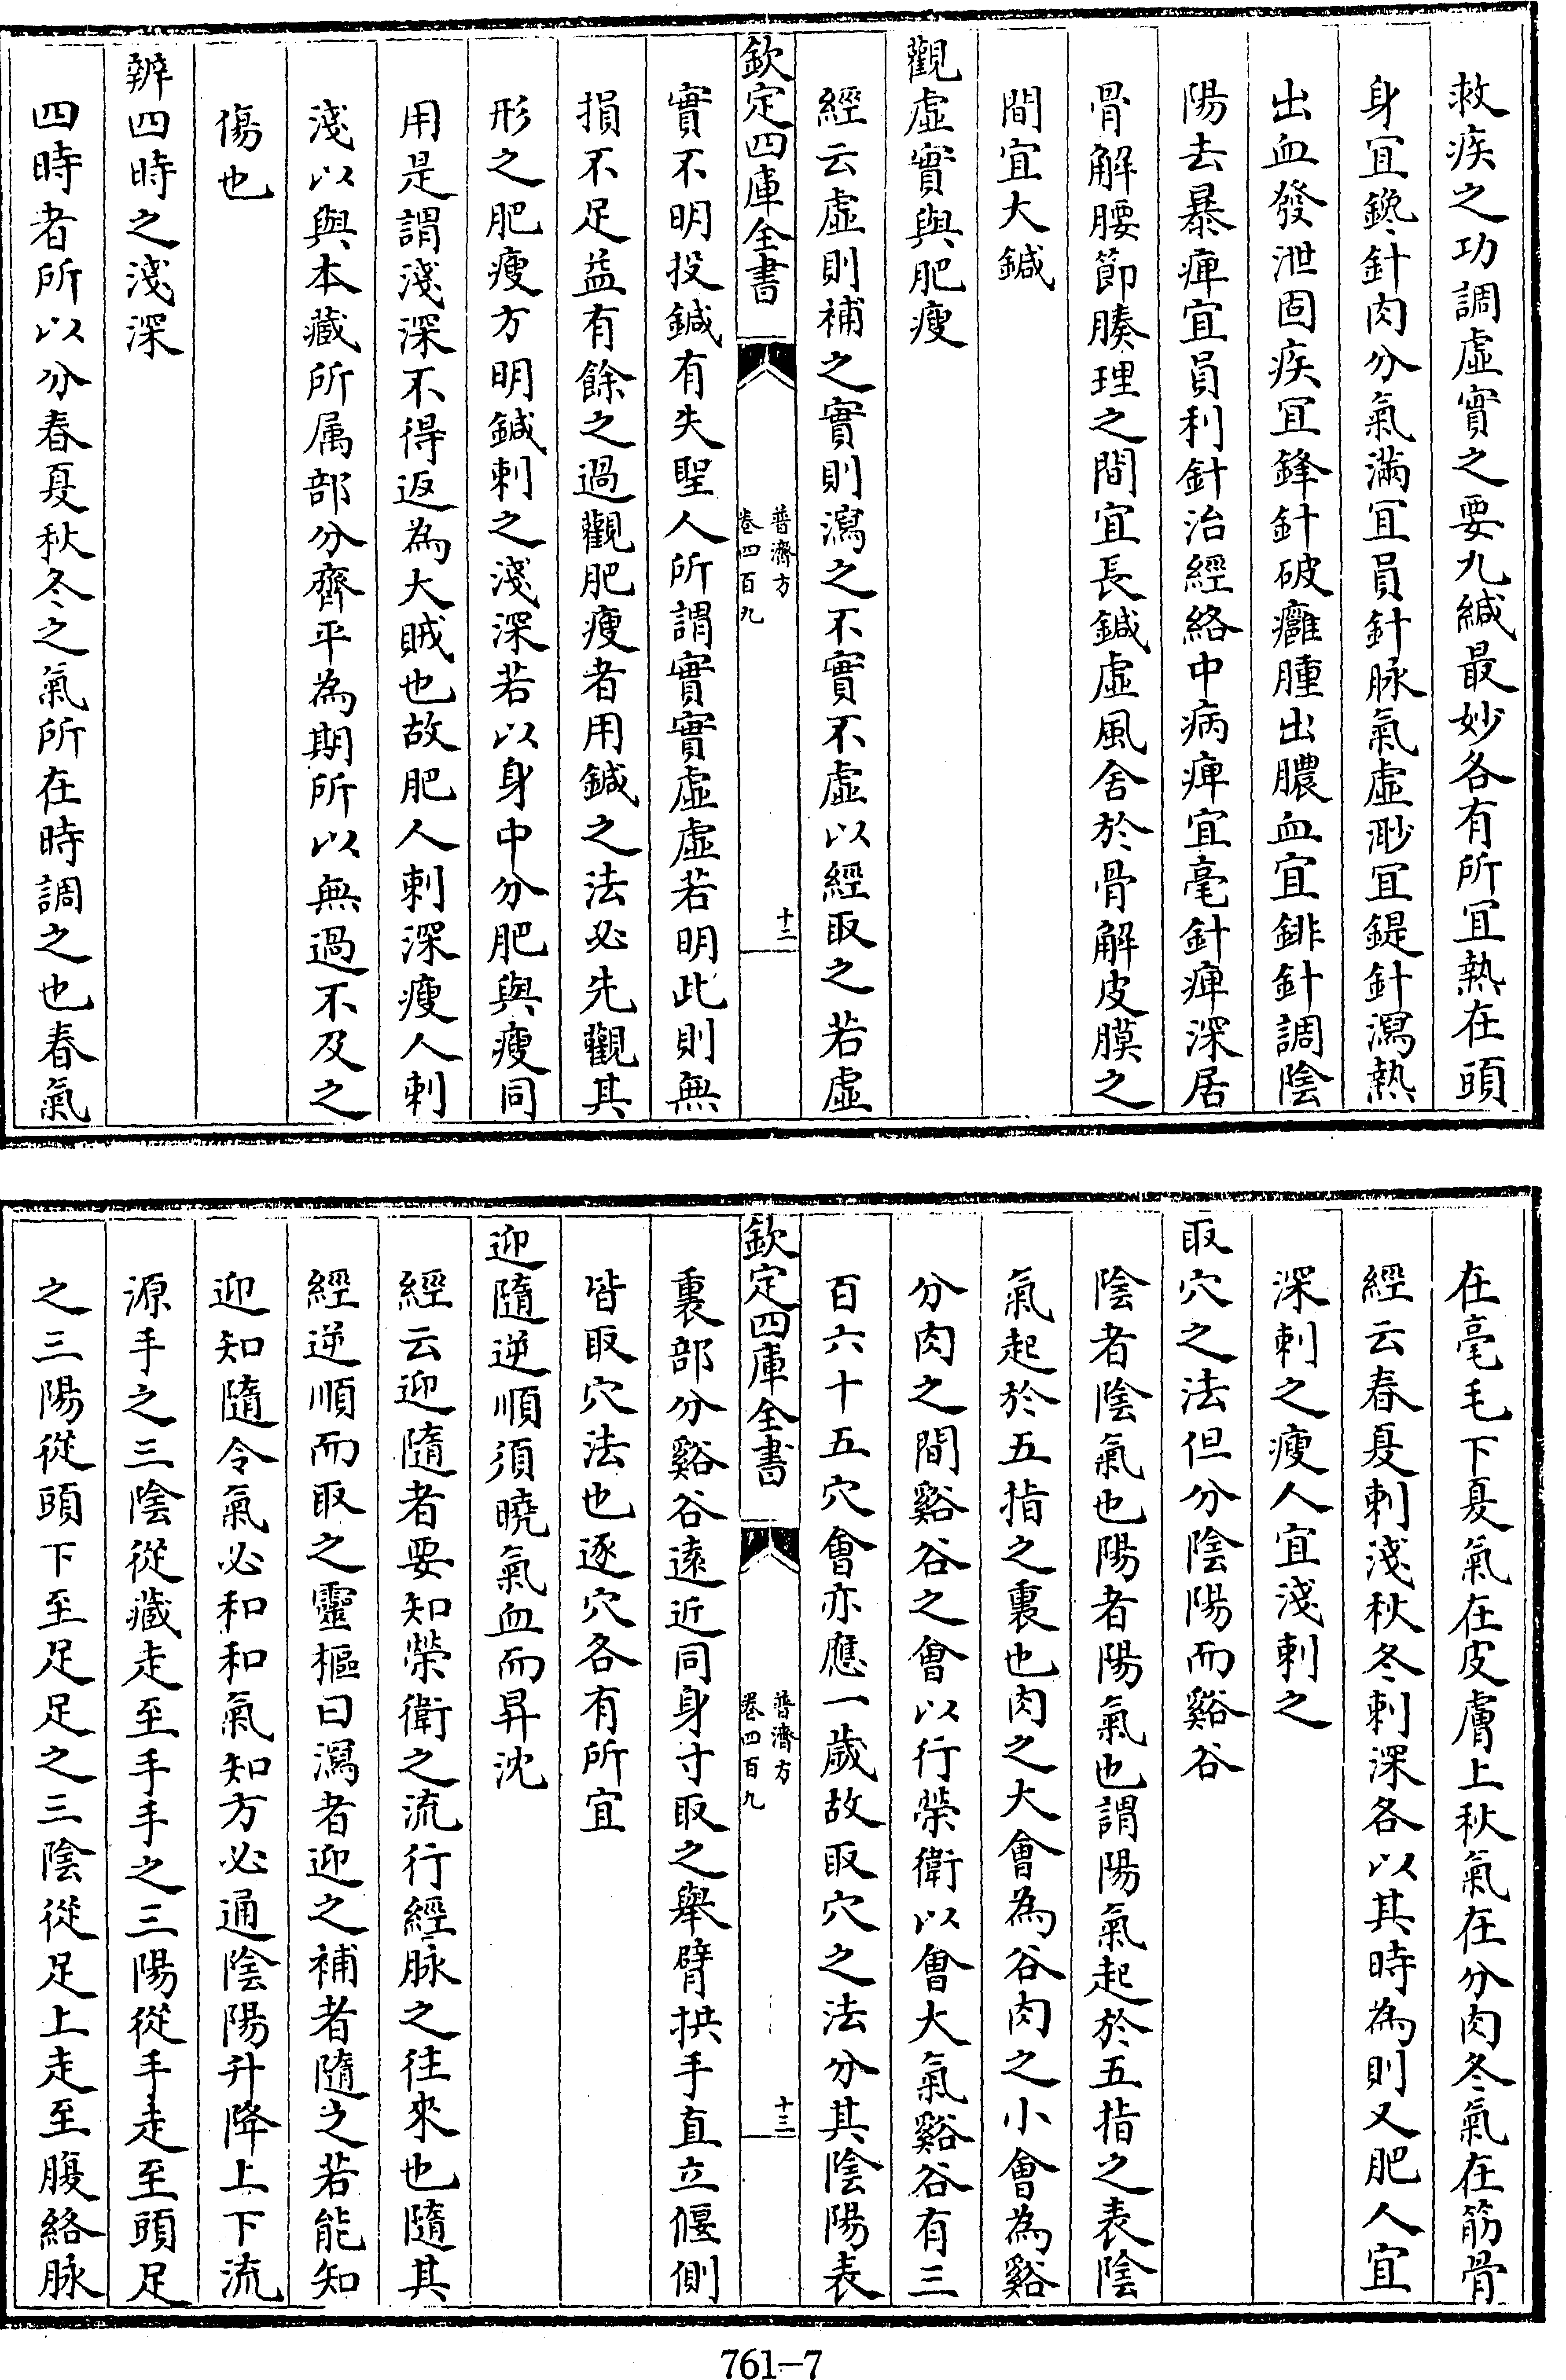 救疾之功調虛實之要九緘最妙各有所宜熱在頭
身宜鑱針肉分氣滿宜員針脉氣虛渺宜鍉針瀉熱
出血發泄固疾宜鋒針破癰腫出膿血宜鈹針調陰
陽去暴痺宜員利針治經絡中病痺宜毫針痺深居
骨解腰節腠理之間宜長鍼虛風舍於骨解皮膜之
間宜大鍼
觀虛實與肥瘦
經云虛則補之實則瀉之不實不虛以經取之若虛
欽定四庫全書
普濟方
卷四百九
十二
實不明投鍼有失聖人所謂實實虛虛若明此則無
損不足益有餘之過觀肥瘦者用鍼之法必先觀其
形之肥瘦方明鍼刺之淺深若以身中分肥與瘦同
用是謂淺深不得返為大賊也故肥人刺深瘦人刺
淺以與本藏所属部分齊平為期所以無過不及之
傷也
辨四時之淺深
四時者所以分春夏秋冬之氣所在時調之也春氣
在毫毛下夏氣在皮膚上秋氣在分肉冬氣在筋骨
經云春夏刺淺秋冬刺深各以其時為則又肥人宜
深刺之瘦人宜淺刺之
取穴之法但分陰陽而谿谷
陰者陰氣也陽者陽氣也謂陽氣起於五指之表陰
氣起於五指之裏也肉之大會為谷肉之小會為谿
分肉之間谿谷之會以行榮衛以會大氣谿谷有三
百六十五穴會亦應一歲故取穴之法分其陰陽表
欽定四庫全書
普濟方
卷四百九
十三
裏部分谿谷遠近同身寸取之舉臂拱手直立偃側
皆取穴法也逐穴各有所宜
迎隨逆順須曉氣血而昇沈
經云迎隨者要知榮衛之流行經脉之往來也隨其
經逆順而取之靈樞曰瀉者迎之補者隨之若能知
迎知隨令氣必和和氣知方必通陰陽升降上下流
源手之三陰從藏走至手手之三陽從手走至頭足
之三陽從頭下至足足之三陰從足上走至腹絡脉
761-7